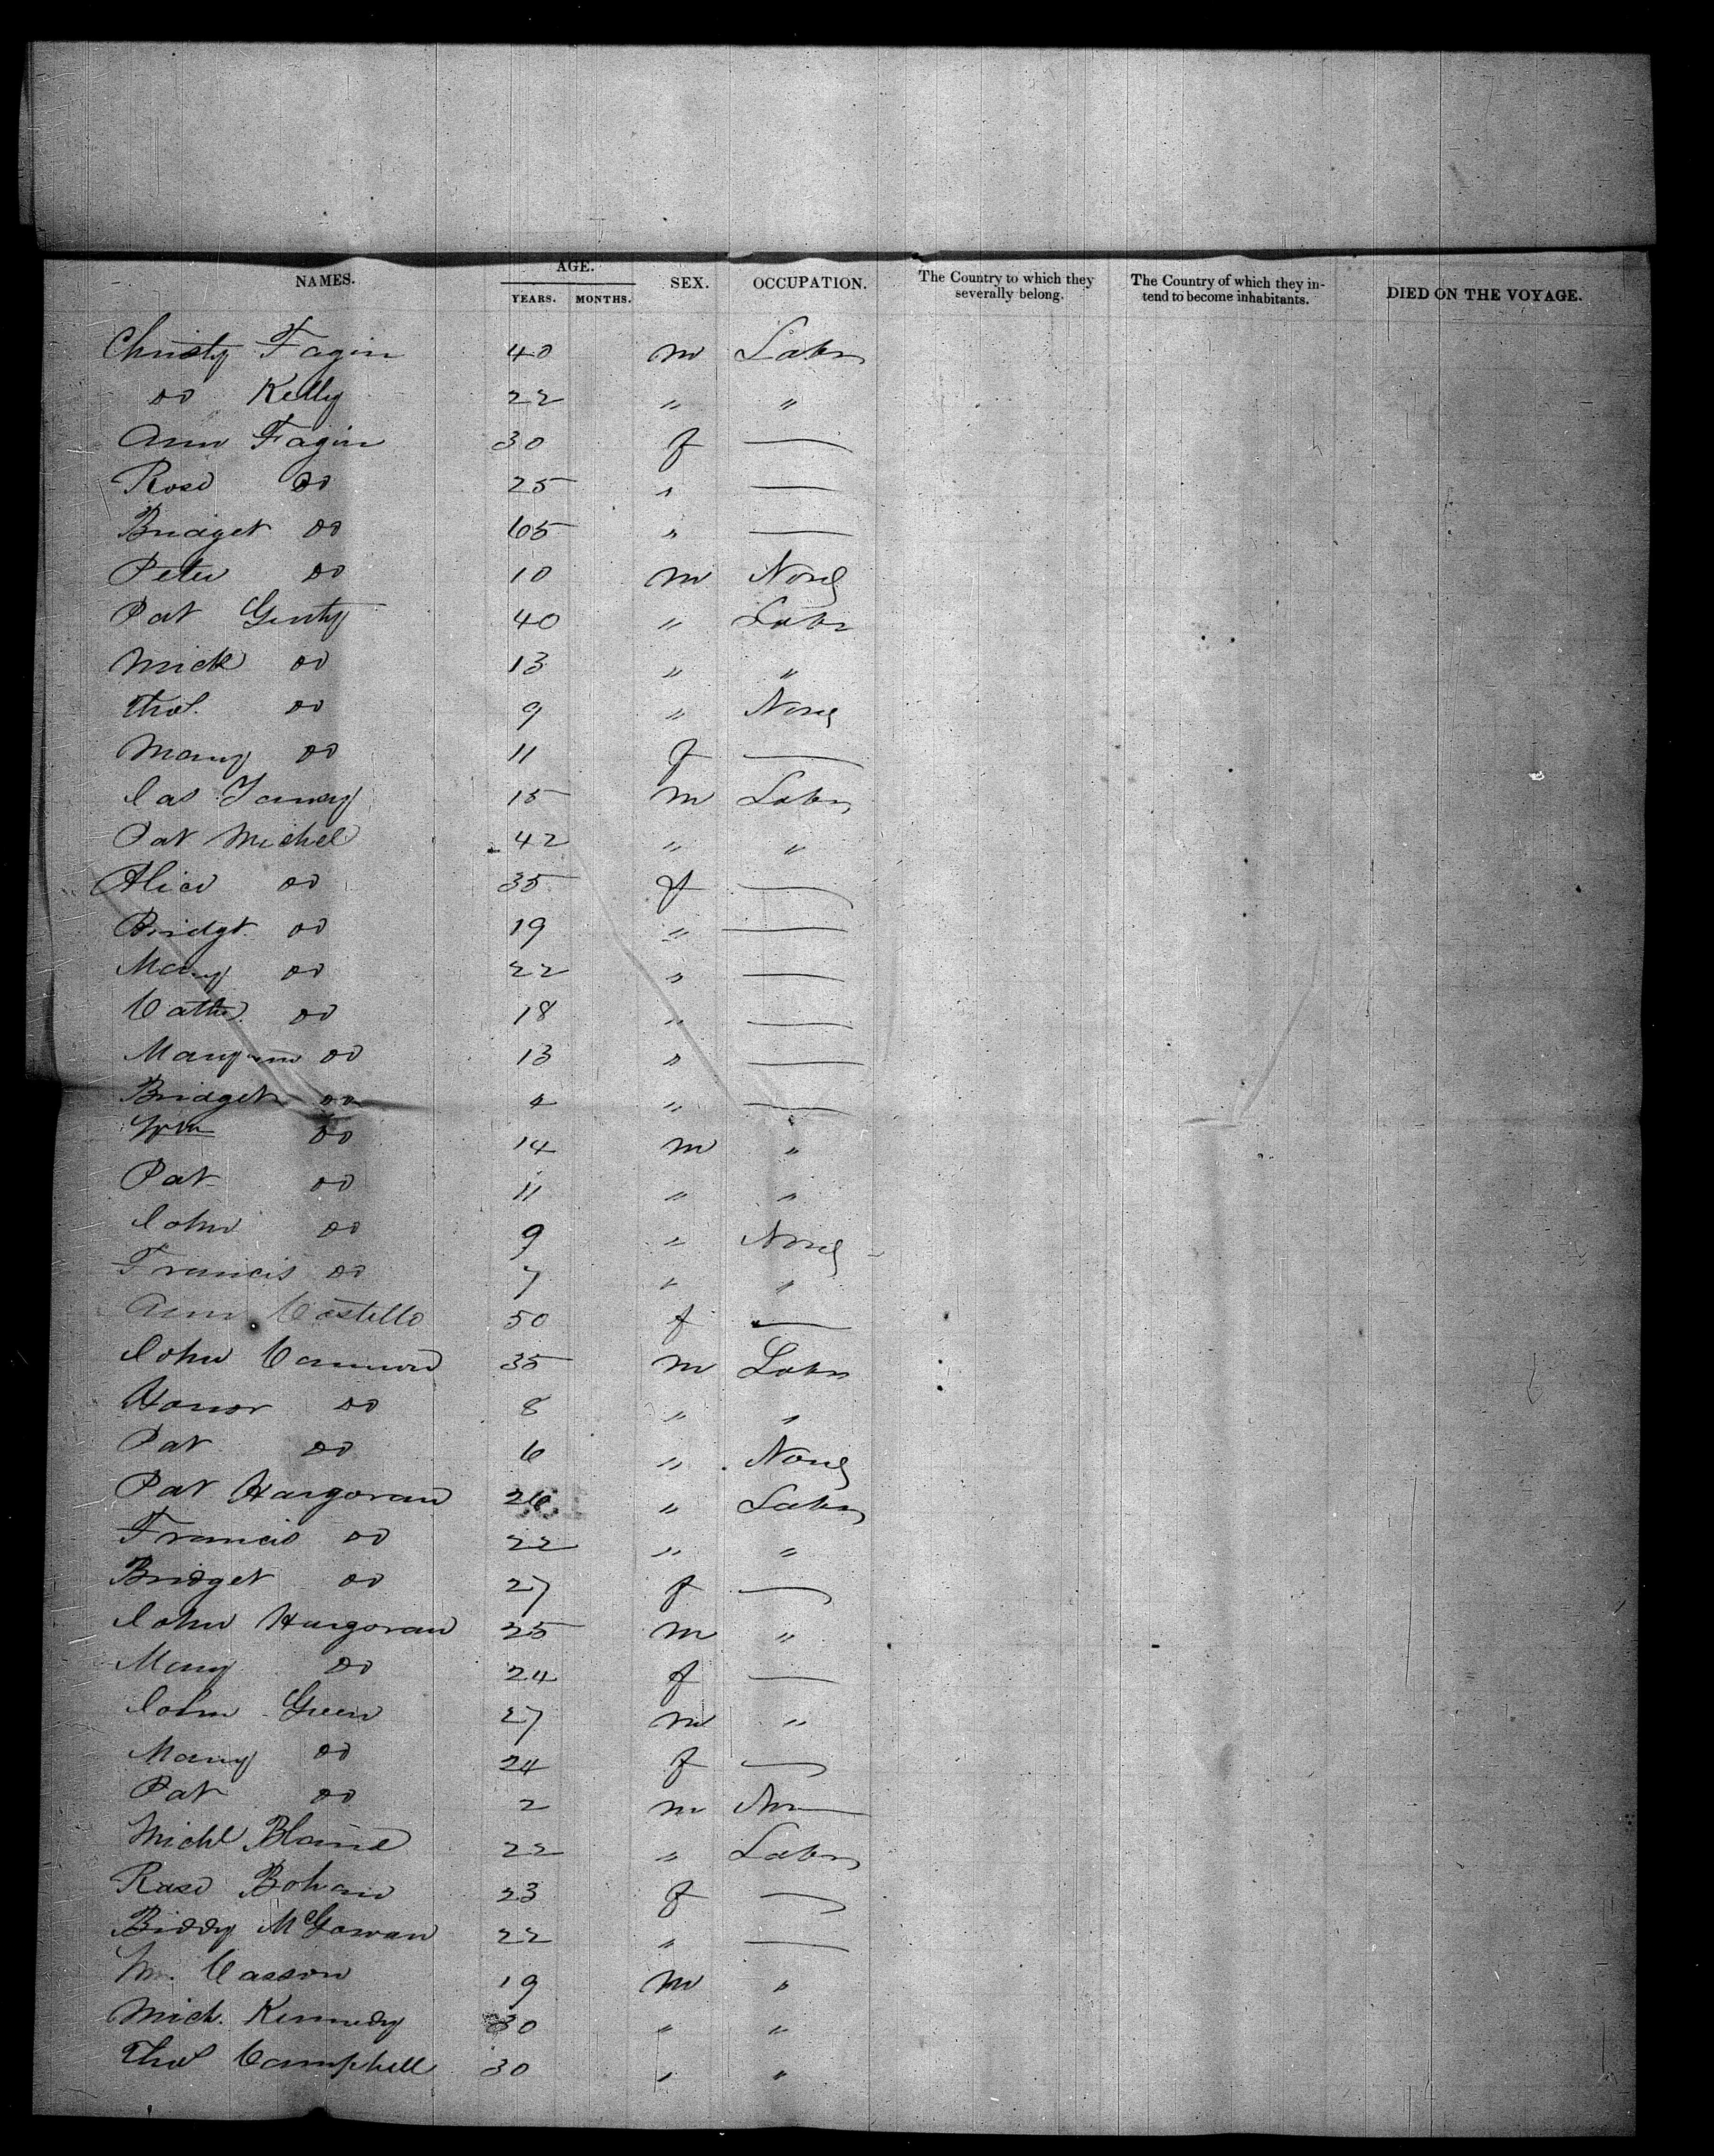 NAMES. AGE. SEX. OCCUPATION. The Country to which they severally belong. The Country of which they intend to become inhabitants. DIED ON THE VOYAGE.
YEARS. MONTHS.
Christy Fagin 40 m Labr
do Kelly 22 " "
Ann Fagin 30 f —
Rose do 25 " —
Bridget do 65 " —
Peter do 10 m None
Pat Ginty 40 " Labr
Mick do 13 " "
Thos. do 9 " None
Mary do 11 f —
Jas 15 m Labr
Pat Michel 42 " "
Alice do 35 f —
Bridgt. do 19 " —
Mary do 22 " —
Cath. do 18 " —
Maryann do 13 " —
Bridget do 4 " —
Wm do 14 m "
Pat do 11 " "
John do 9 " None
Francis do 7 " "
Ann Costello 50 f —
John Cannon 35 m Labr
Honor do 8 " "
Pat do 6 " None
Pat Hargoran 26 " Labr
Francis do 22 " "
Bridget do 27 f —
John Hargoran 25 m "
Mary do 24 f —
John Green 27 m "
Mary do 24 f —
Pat do 2 m None
Michl Blaine 22 " Labr
Rose Bohan 23 f —
Biddy McGowan 22 " —
Casson 19 m "
Mich. Kennedy 30 " "
Thos Campbell 30 " "